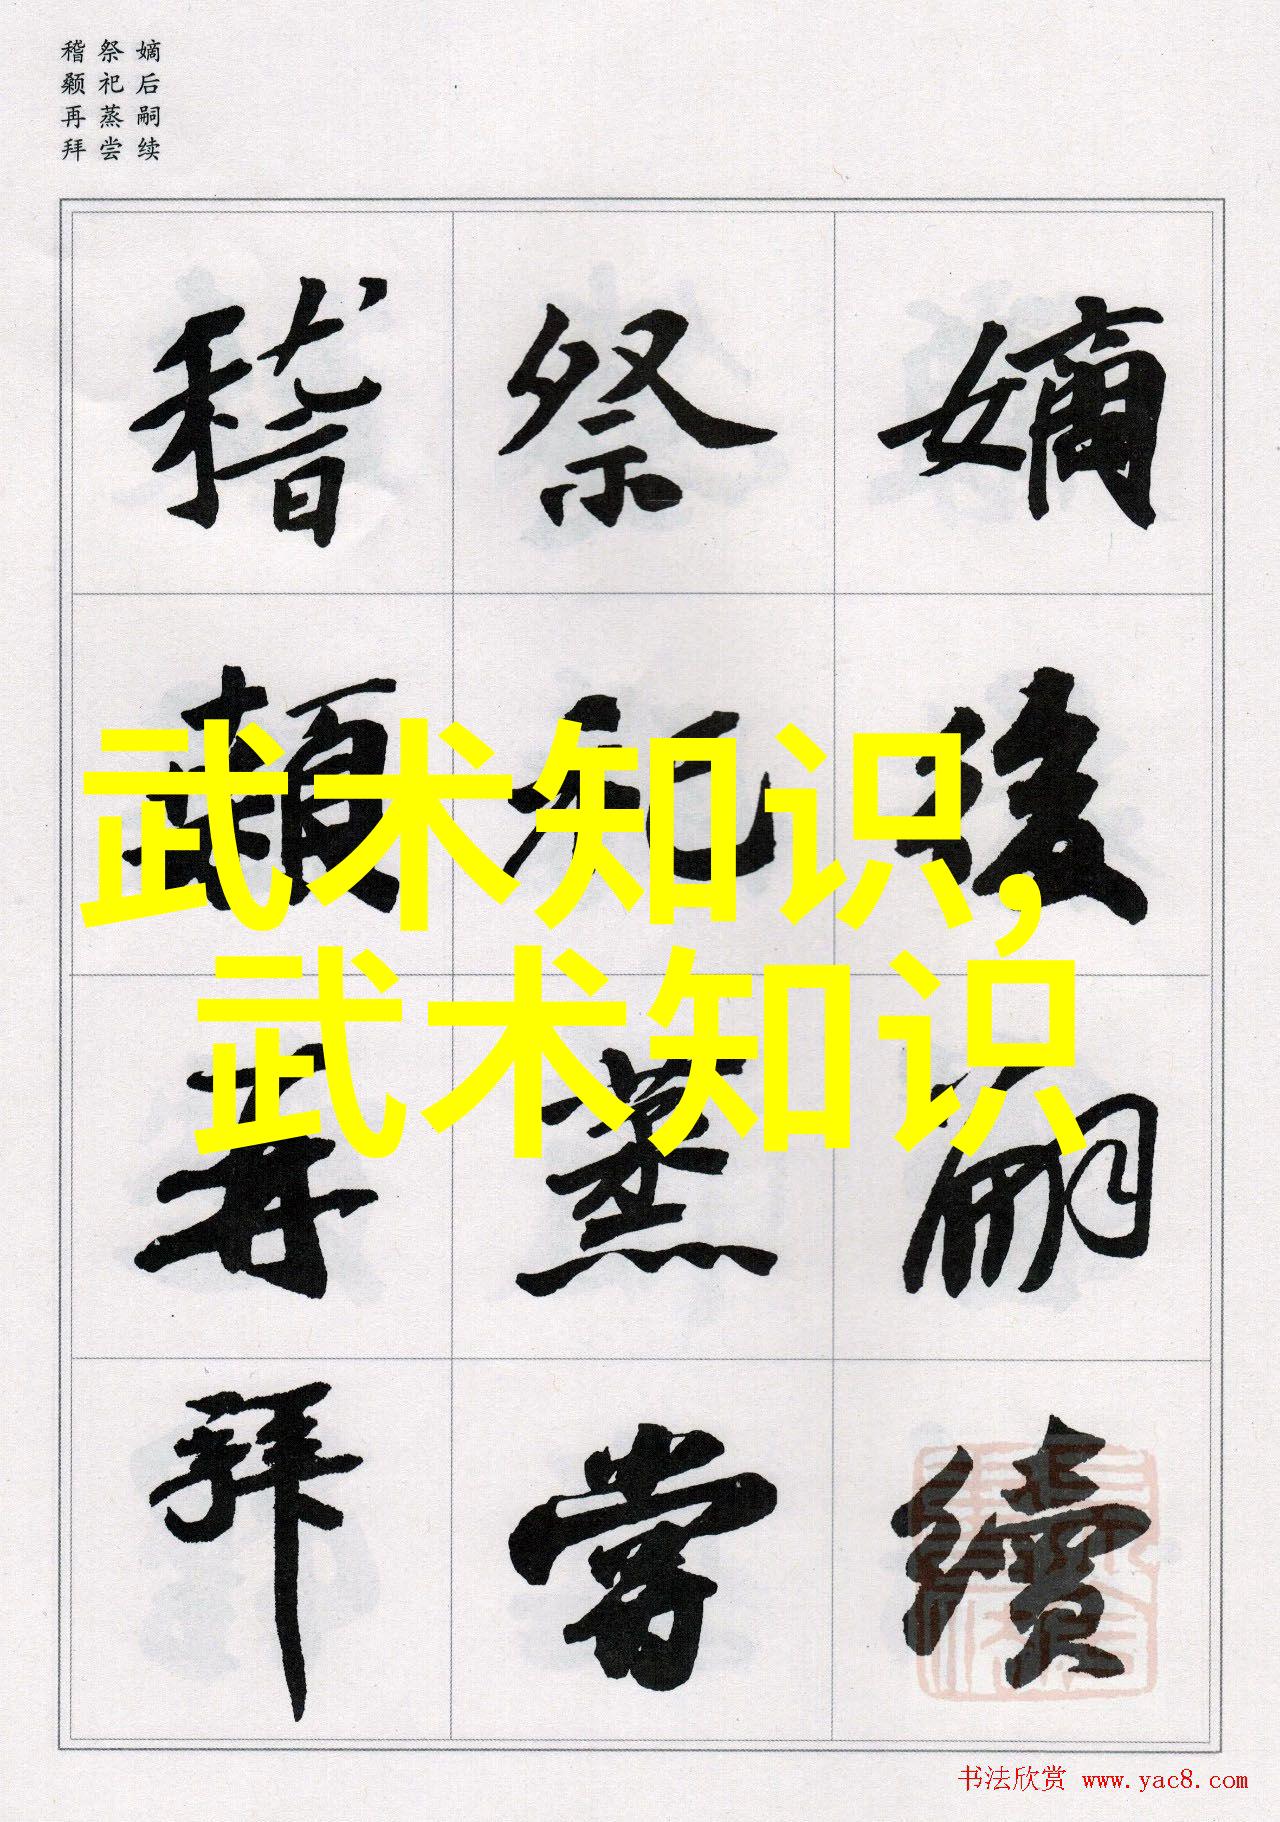 嫡后嗣续
祭祀蒸尝
稽颡再拜
嫡後嗣續
祭祀蒸嘗
稽顙再拜
武术知识,
武术知识
书法欣赏 www.yac8.com